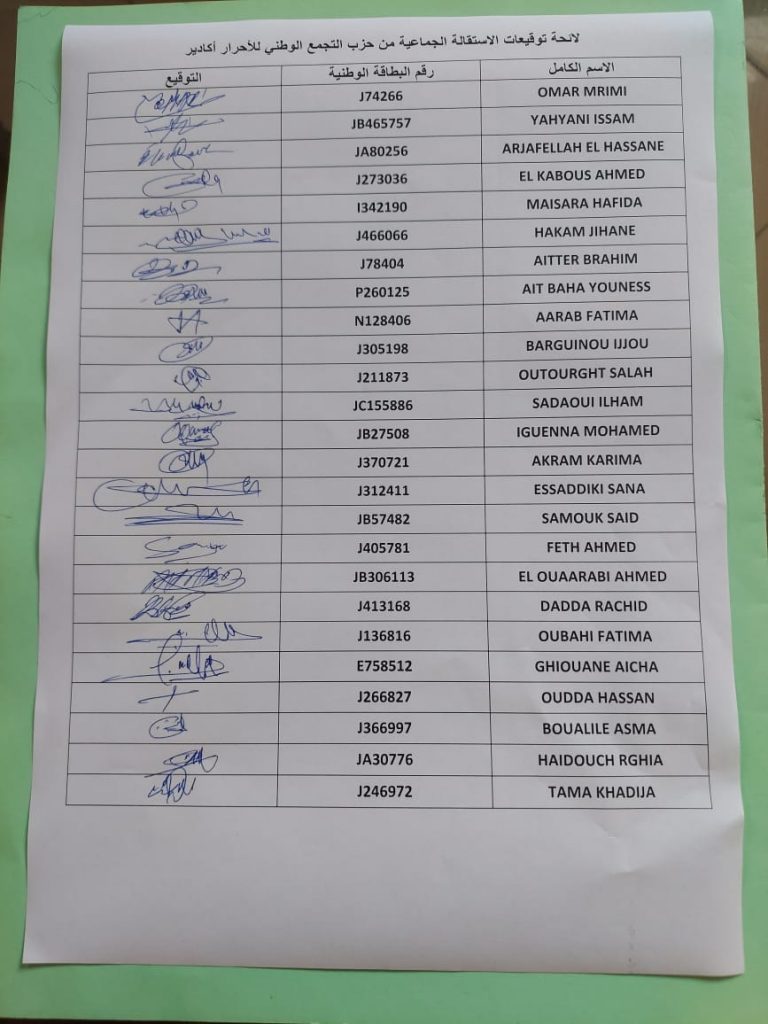 لائحة توقيعات الاستقالة الجماعية من حزب التجمع الوطني للأحرار أكادير
الاسم الكامل رقم البطاقة الوطنية التوقيع
OMAR MRIMI J74266
YAHYANI ISSAM JB465757
ARJAFELLAH EL HASSANE JA80256
EL KABOUS AHMED J273036
MAISARA HAFIDA I342190
HAKAM JIHANE J466066
AITTER BRAHIM J78404
AIT BAHA YOUNESS P260125
AARAB FATIMA N128406
BARGUINOU IJJOU J305198
OUTOURGHT SALAH J211873
SADAOUI ILHAM JC155886
IGUENNA MOHAMED JB27508
AKRAM KARIMA J370721
ESSADDIKI SANA J312411
SAMOUK SAID JB57482
FETH AHMED J405781
EL OUAARABI AHMED JB306113
DADDA RACHID J413168
OUBAHI FATIMA J136816
GHIOUANE AICHA E758512
OUDDA HASSAN J266827
BOUALILE ASMA J366997
HAIDOUCH RGHIA JA30776
TAMA KHADIJA J246972